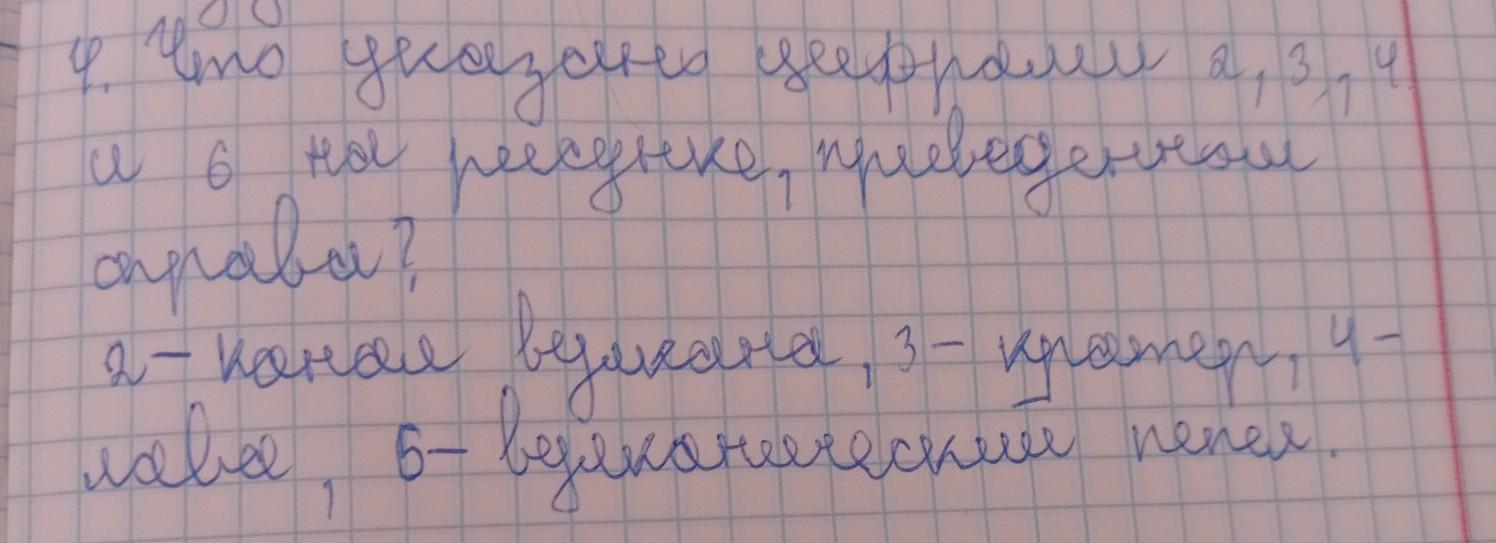 4. Что указано цифрами 2, 3, 4
и 6 на рисунке, приведенном
справа?
2 – канал вулкана, 3 – кратер, 4 –
лава, 6 – вулканический пепел.